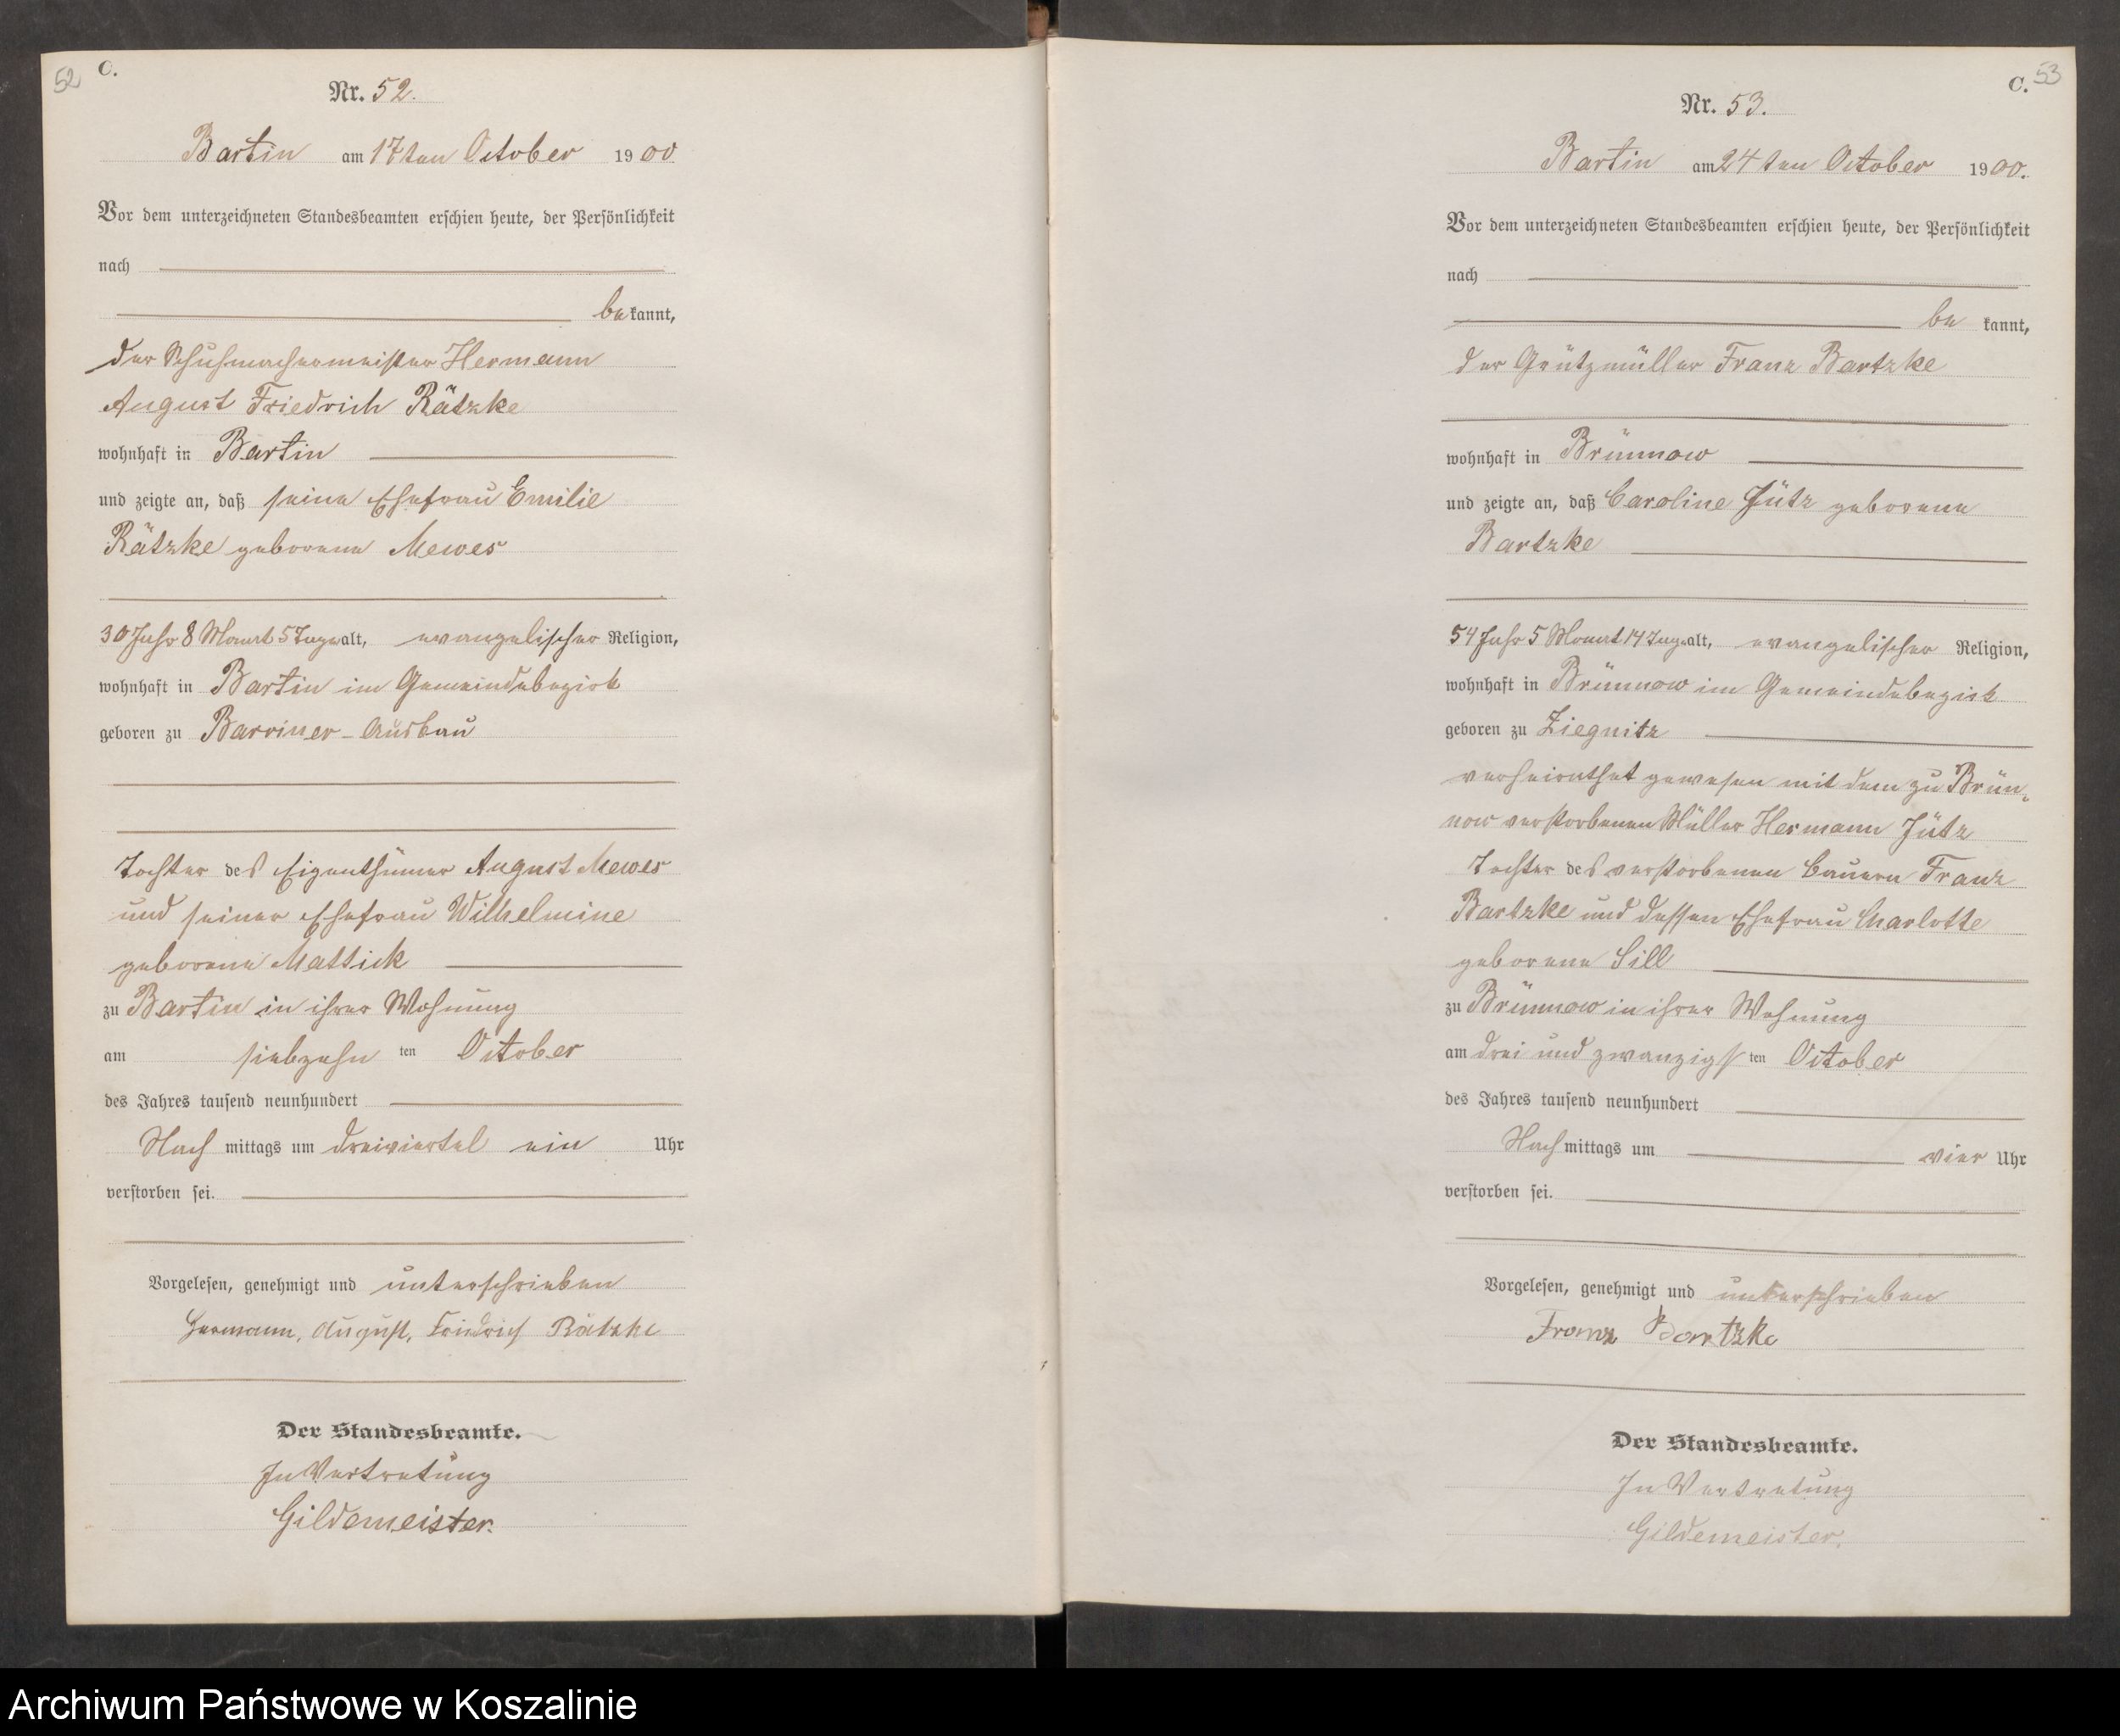 52
C.
Nr. 52.
Bartin am 17ten October 1900
Vor dem unterzeichneten Standesbeamten erschien heute, der Persönlichkeit
nach
bekannt,
der Schuhmachermeister Hermann
August Friedrich Rätzke
wohnhaft in Bartin
und zeigte an, daß seine Ehefrau Emilie
Rätzke geborene Mewes
30 Jahr 8 Monat 5 Tage alt, evangelischer Religion,
wohnhaft in Bartin im Gemeindebezirk
geboren zu Barviner-Ausbau
Tochter des Eigenthümer August Mewes
und seiner Ehefrau Wilhelmine
geborene Mattick
zu Bartin in ihrer Wohnung
am siebzehn ten October
des Jahres tausend neunhundert
Nachmittags um dreiviertel ein Uhr
verstorben sei.
Vorgelesen, genehmigt und unterschrieben
Hermann, August, Friedrich Rätzke
Der Standesbeamte.
In Vertretung
Gildemeister.
C. 53
Nr. 53.
Bartin am 24ten October 1900.
Vor dem unterzeichneten Standesbeamten erschien heute, der Persönlichkeit
nach
bekannt,
der Grützmüller Franz Bartzke
wohnhaft in Brünnow
und zeigte an, daß Caroline Jütz geborene
Bartzke
54 Jahr 5 Monat 14 Tage alt, evangelischer Religion,
wohnhaft in Brünnow im Gemeindebezirk
geboren zu Ziegnitz
verheirathet gewesen mit dem zu Brün-
now verstorbenen Müller Hermann Jütz
Tochter des verstorbenen Bauern Franz
Bartzke und dessen Ehefrau Charlotte
geborene Sill
zu Brünnow in ihrer Wohnung
am drei und zwanzigsten October
des Jahres tausend neunhundert
Nachmittags um vier Uhr
verstorben sei.
Vorgelesen, genehmigt und unterschrieben
Franz Bartzke
Der Standesbeamte.
In Vertretung
Gildemeister.
Archiwum Państwowe w Koszalinie